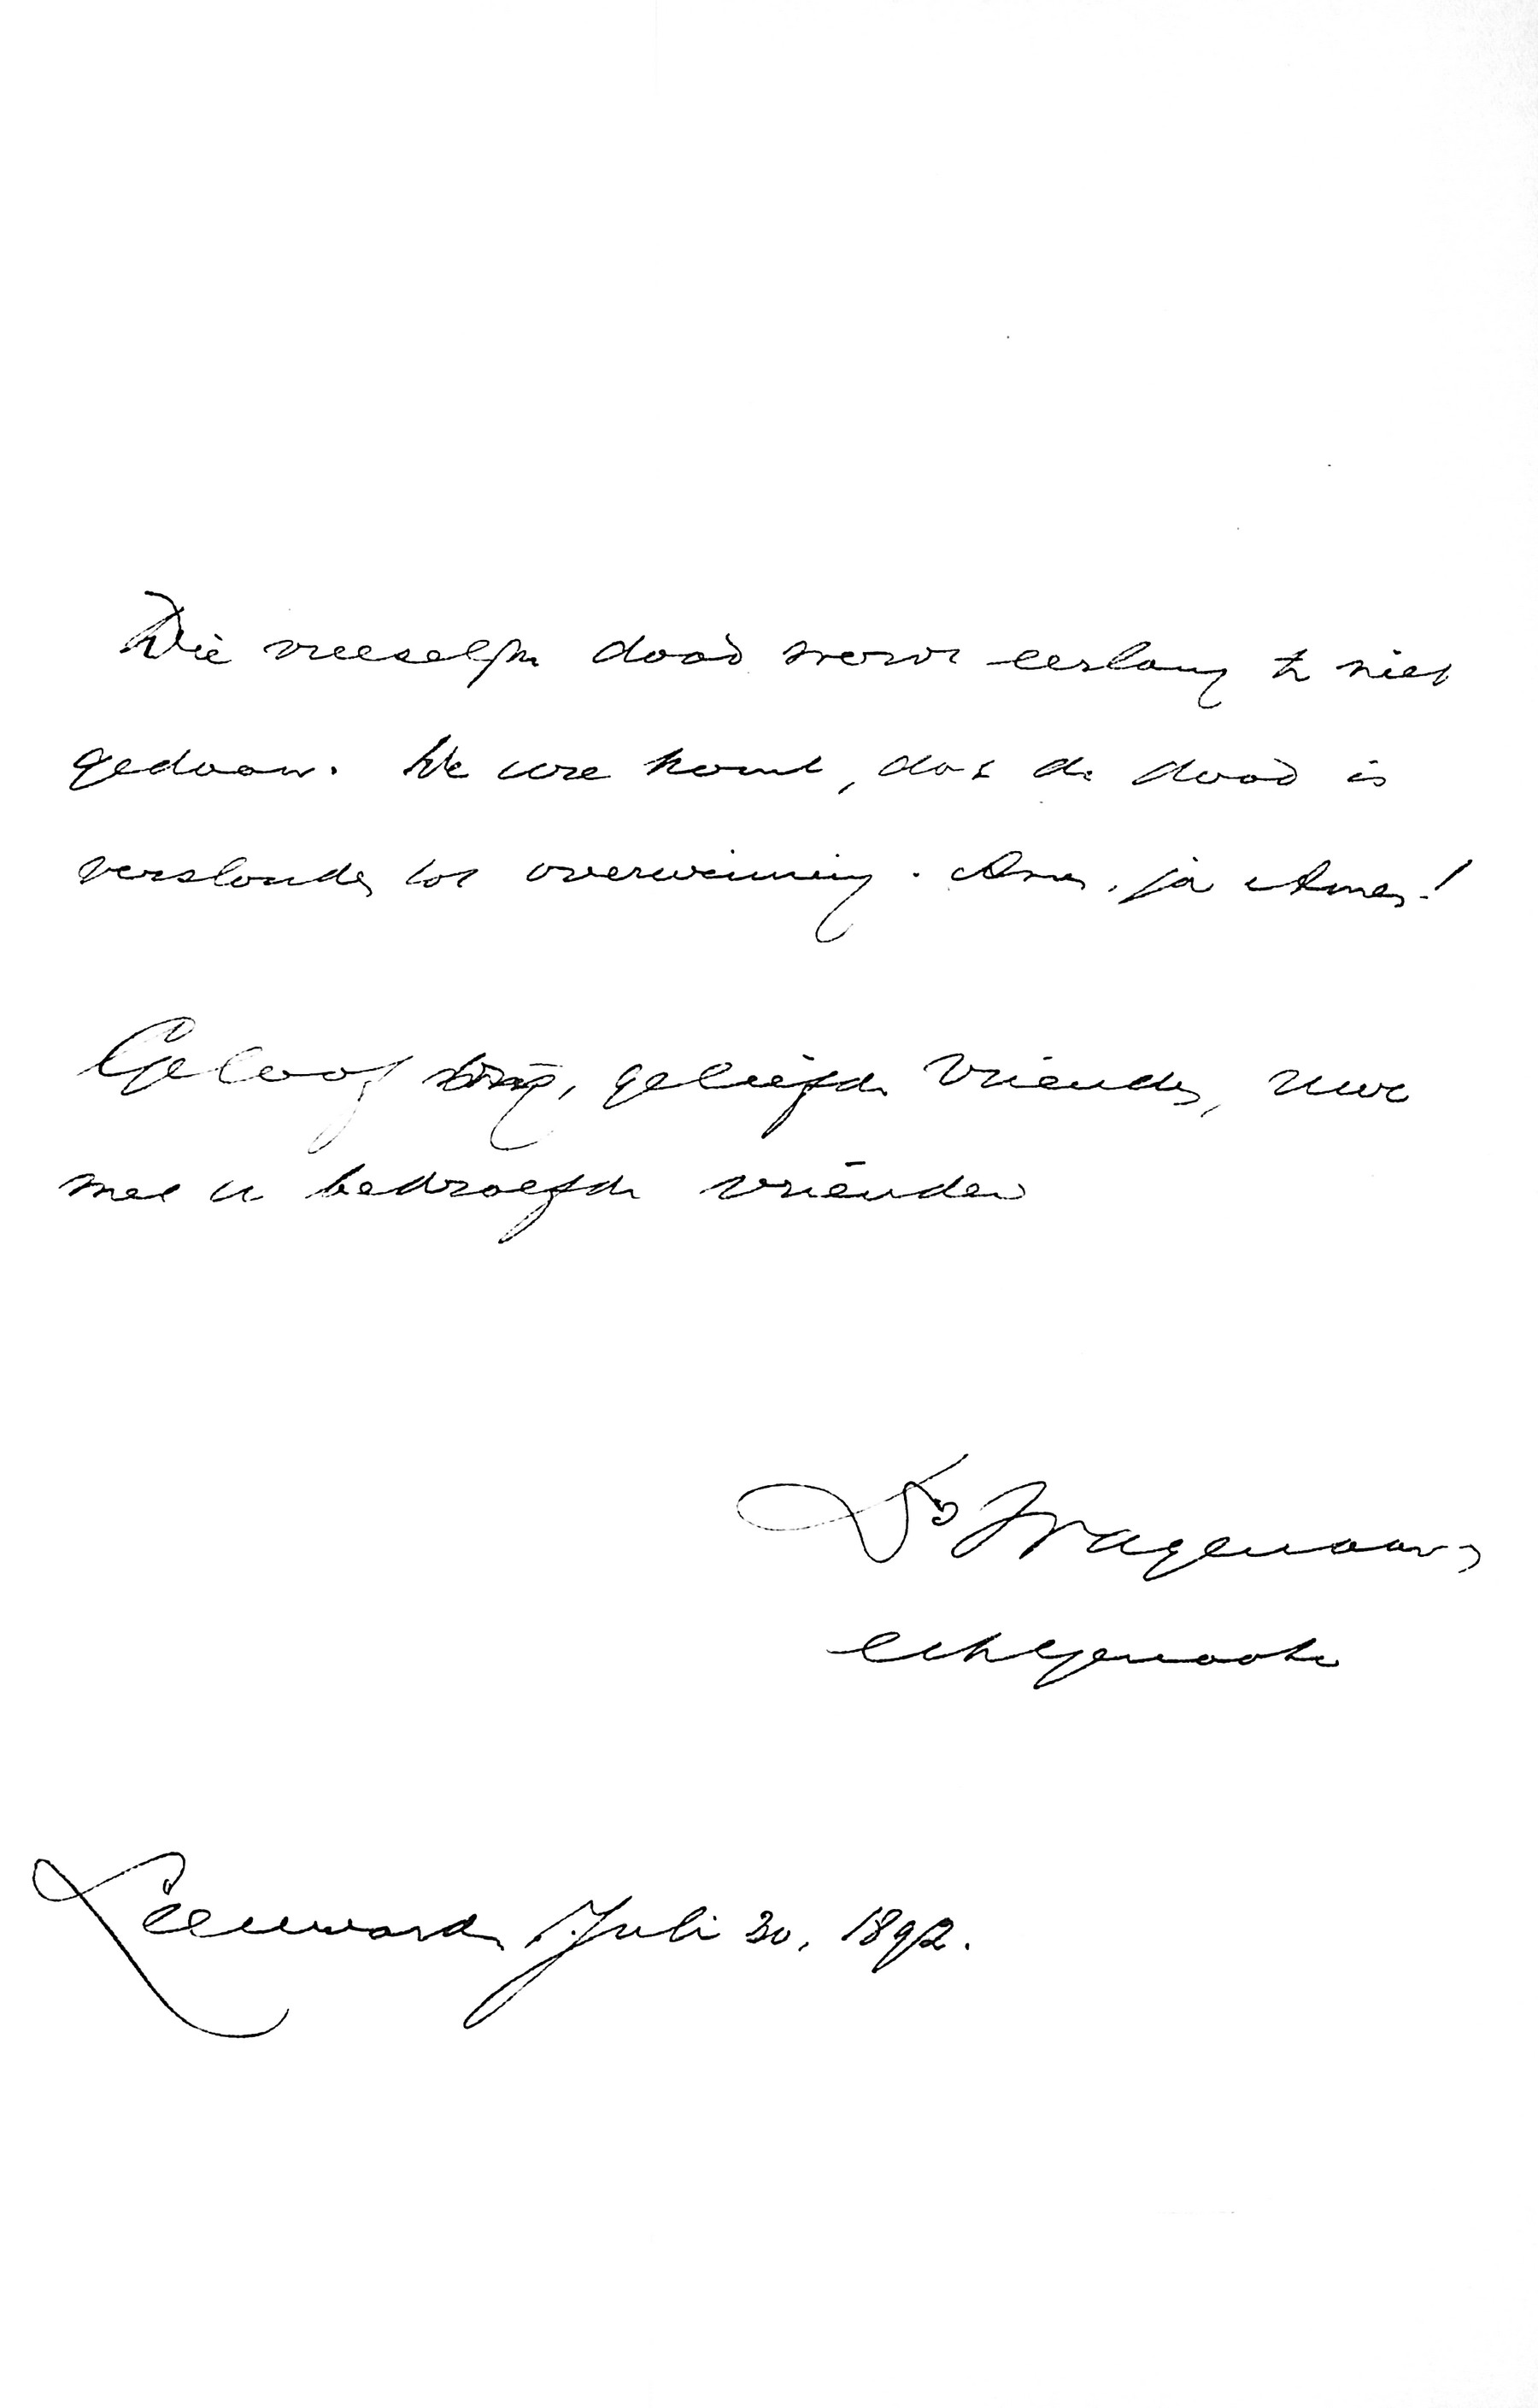 Die vreeselijke dood wordt eerlang te niet
gedaan. De ure komt, dat de dood is
verslonden tot overwinning. Amen, ja Amen!
Geloof mij, geliefde vrienden, uwe
met u bedroefde vrienden
Ds Wagenaar &
echtgenoote
Leeuwarden Juli 30, 1892.